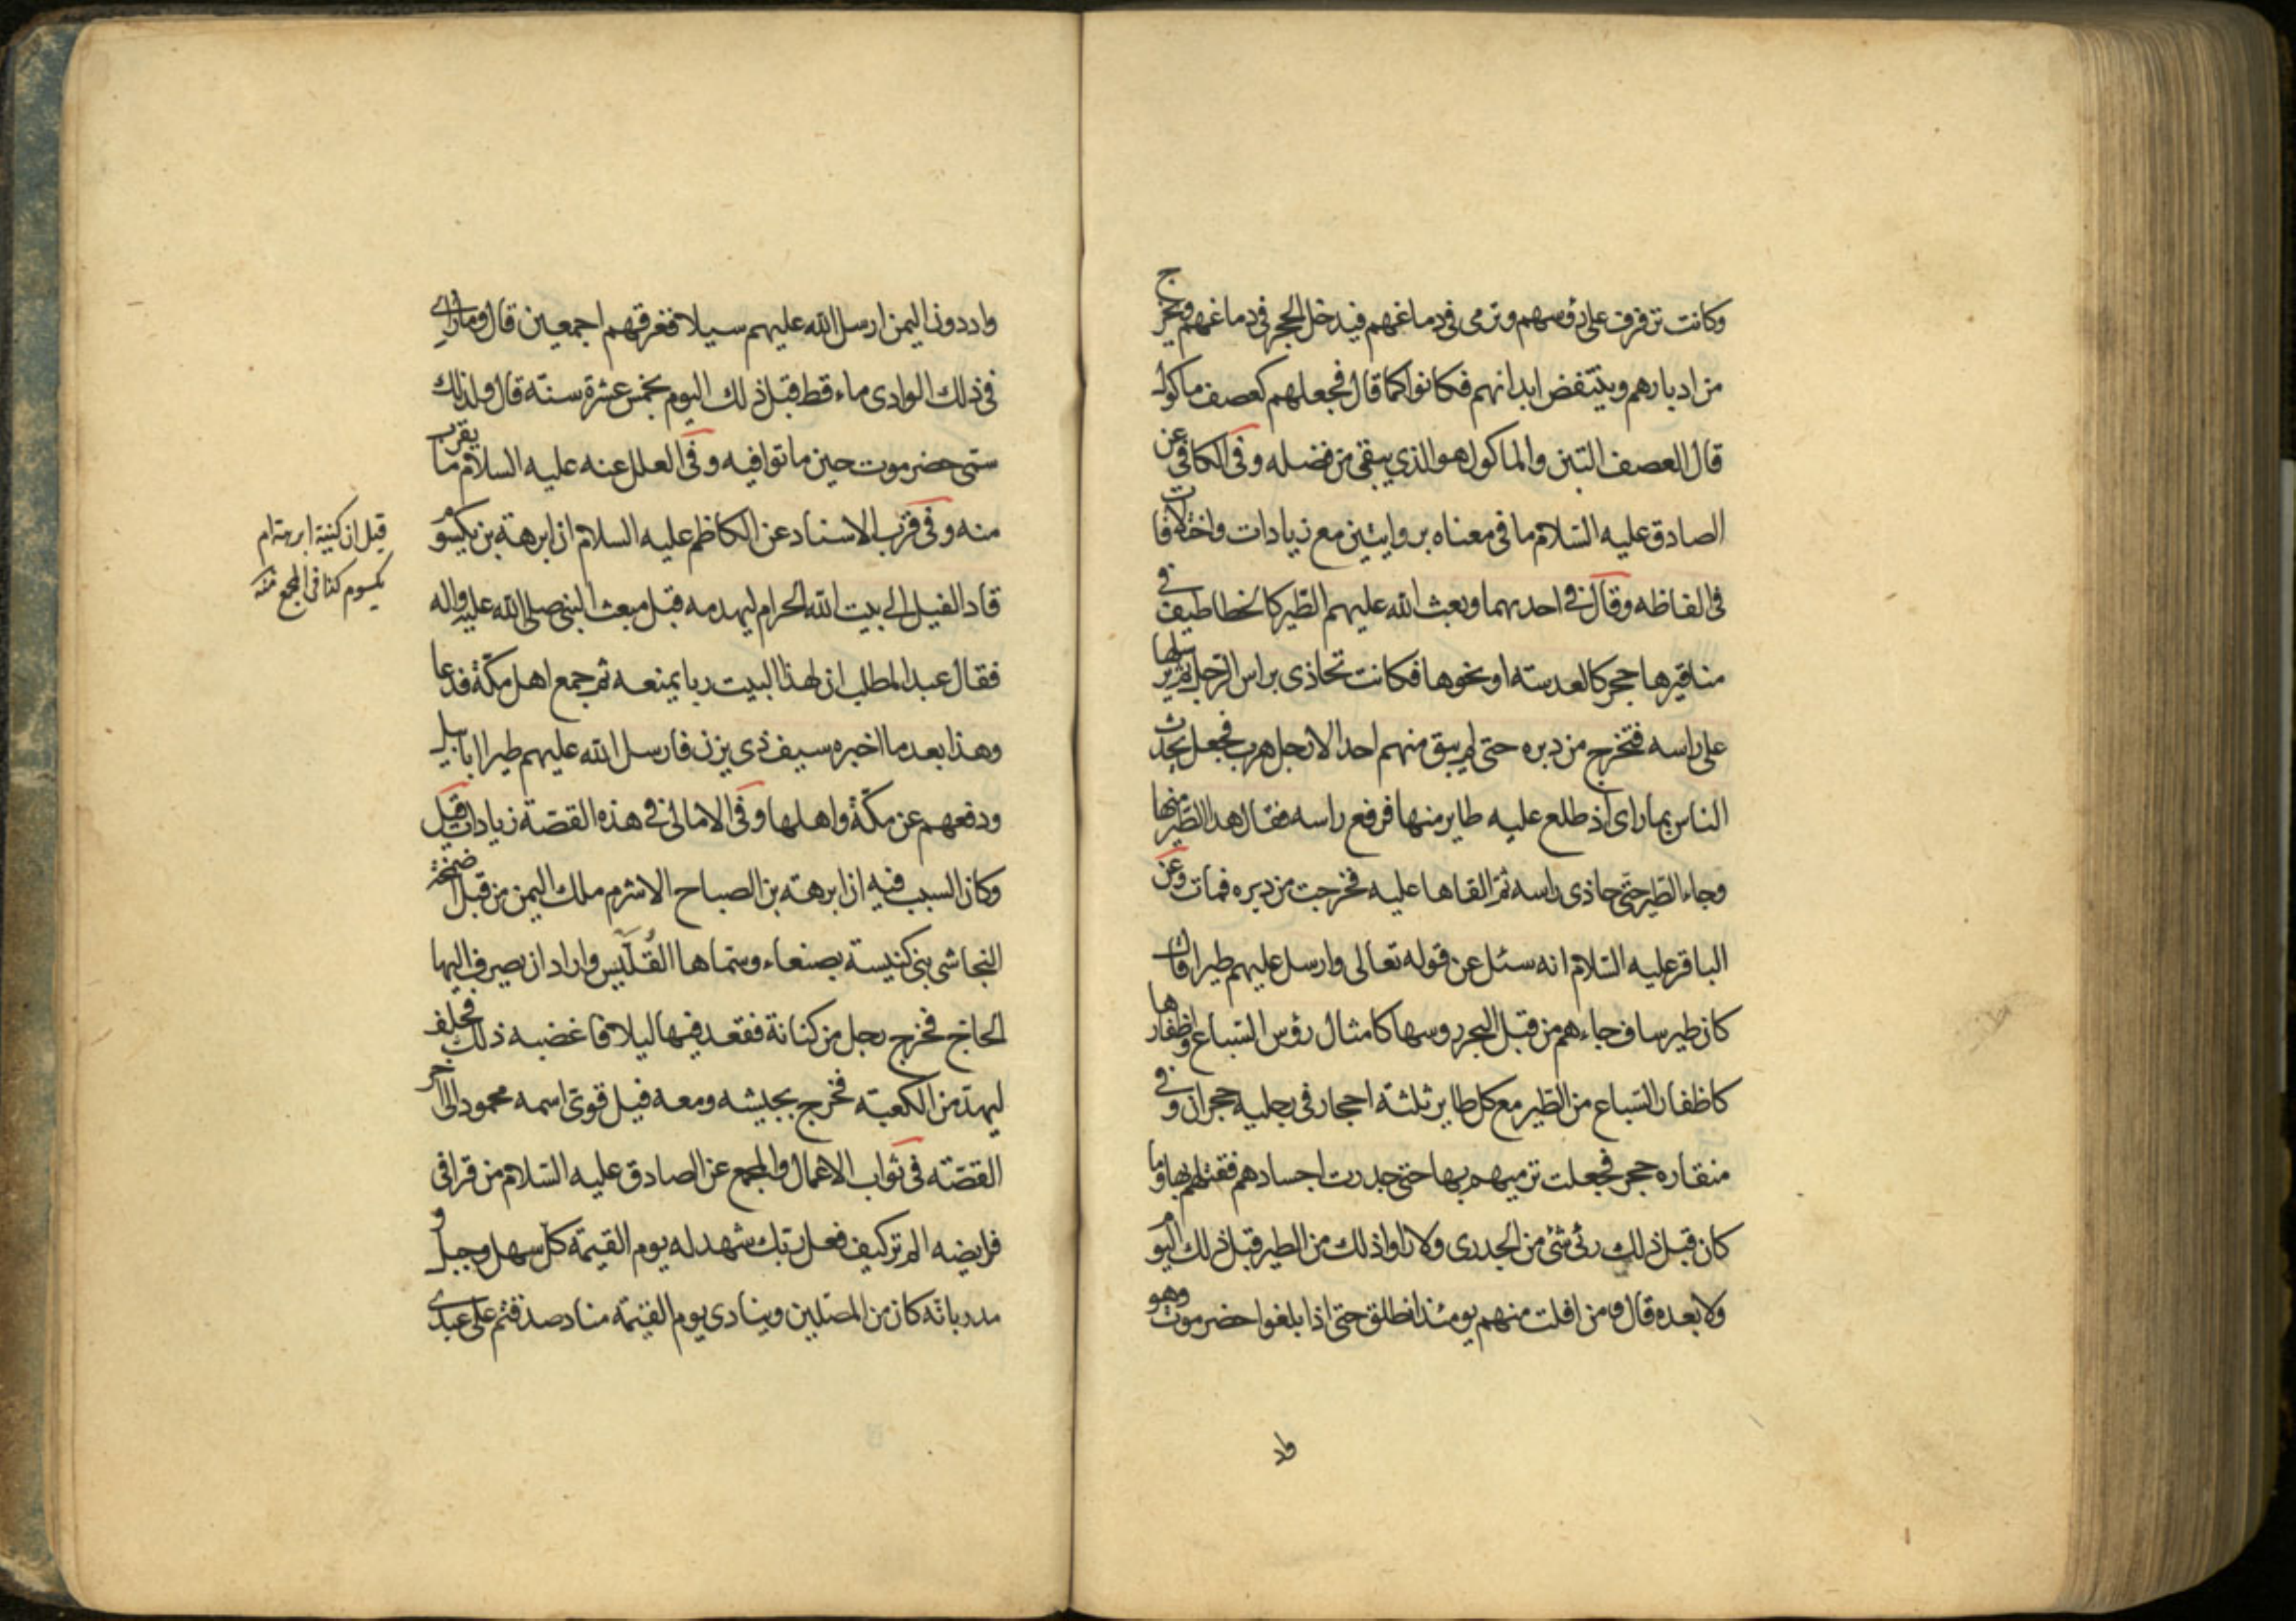 وكانت ترفرف على رؤسهم وترمى فى دماغهم فيدخل الحجر فى دماغهم ويخرج
من ادبارهم وينتفض ابدانهم فكانوا كما قال فجعلهم كعصف ماكول
قال العصف التبن والماكول هو الذي يبقى من فضله وفى الكافى عن
الصادق عليه السّلام ما فى معناه بروايتين مع زيادات واختلافات
فى الفاظه وقال فى احدهما وبعث الله عليهم الطّير كالخطاطيف فى
مناقيرها حجر كالعدسته او نحوها فكانت تحاذى براس الرّجل ثمّ يرسلها
على راسه فتخرج من دبره حتى لم يبق منهم احد الا رجل هرب فجعل يحدث
الناس بما راى اذ طلع عليه طاير منها فرفع راسه فقال هذا الطّير منها
وجاء الطّير حتّى حاذى راسه ثمّ القاها عليه فخرجت من دبره فمات وعن
الباقر عليه السّلام انه سئل عن قوله تعالى وارسل عليهم طيرا قال
كان طير ساف جاءهم من قبل البحر روسها كامثال رؤس السّباع واظفارها
كاظفار السّباع من الطّير مع كل طاير ثلثة احجار فى رجليه حجران وفى
منقاره حجر فجعلت ترميهم بها حتى جدرت اجسادهم فقتلهم بها وما
كان قبل ذلك رئى شئ من الجدرى ولا راوا ذلك من الطير قبل ذلك اليوم
ولا بعده قال ومن افلت منهم يومئذ انطلق حتى اذا بلغوا حضرموت وهو
واد
واد دون اليمن ارسل الله عليهم سيلا فغرقهم اجمعين قال وما راى
فى ذلك الوادى ماء قط قبل ذلك اليوم بخمس عشرة سنته قال ولذلك
سمّى حضرموت حين ماتوا فيه وفى العلل عنه عليه السلام ما يقرب
منه وفى قرب الاسناد عن الكاظم عليه السلام ان ابرهة بن يكسوم
قاد الفيل الى بيت الله الحرام ليهدمه قبل مبعث النبى صلى الله عليه واله
فقال عبد المطلب ان لهذا البيت ربا يمنعه ثم جمع اهل مكّة فدعا
وهذا بعد ما اخبره سيف ذى يزن فارسل الله عليهم طيرا ابابيل
ودفعهم عن مكّة واهلها وفى الامالى فى هذه القصّة زيادات قيل
وكان السبب فيه ان ابرهته بن الصباح الاشرم ملك اليمن من قبل اضخمة
النجاشى بنى كنيسة بصنعاء وسمّاها القُلَّيس واراد ان يصرف اليها
الحاج فخرج رجل من كنانة فقعد فيها ليلا فاغضبه ذلك فحلف
ليهدّمن الكعبته فخرج بجيشه ومعه فيل قوى اسمه محمود الى اخر
القصّته فى ثواب الاعمال والمجمع عن الصادق عليه السّلام من قرا فى
فرايضه الم تر كيف فعل ربّك شهد له يوم القيمّة كل سهل وجبل و
مدر بانّه كان من المصّلين وينادى يوم القيمّه مناد صدقتم على عبدى
قيل ان كنية ابرهة ام
يكسوم كذا فى المجمع منه